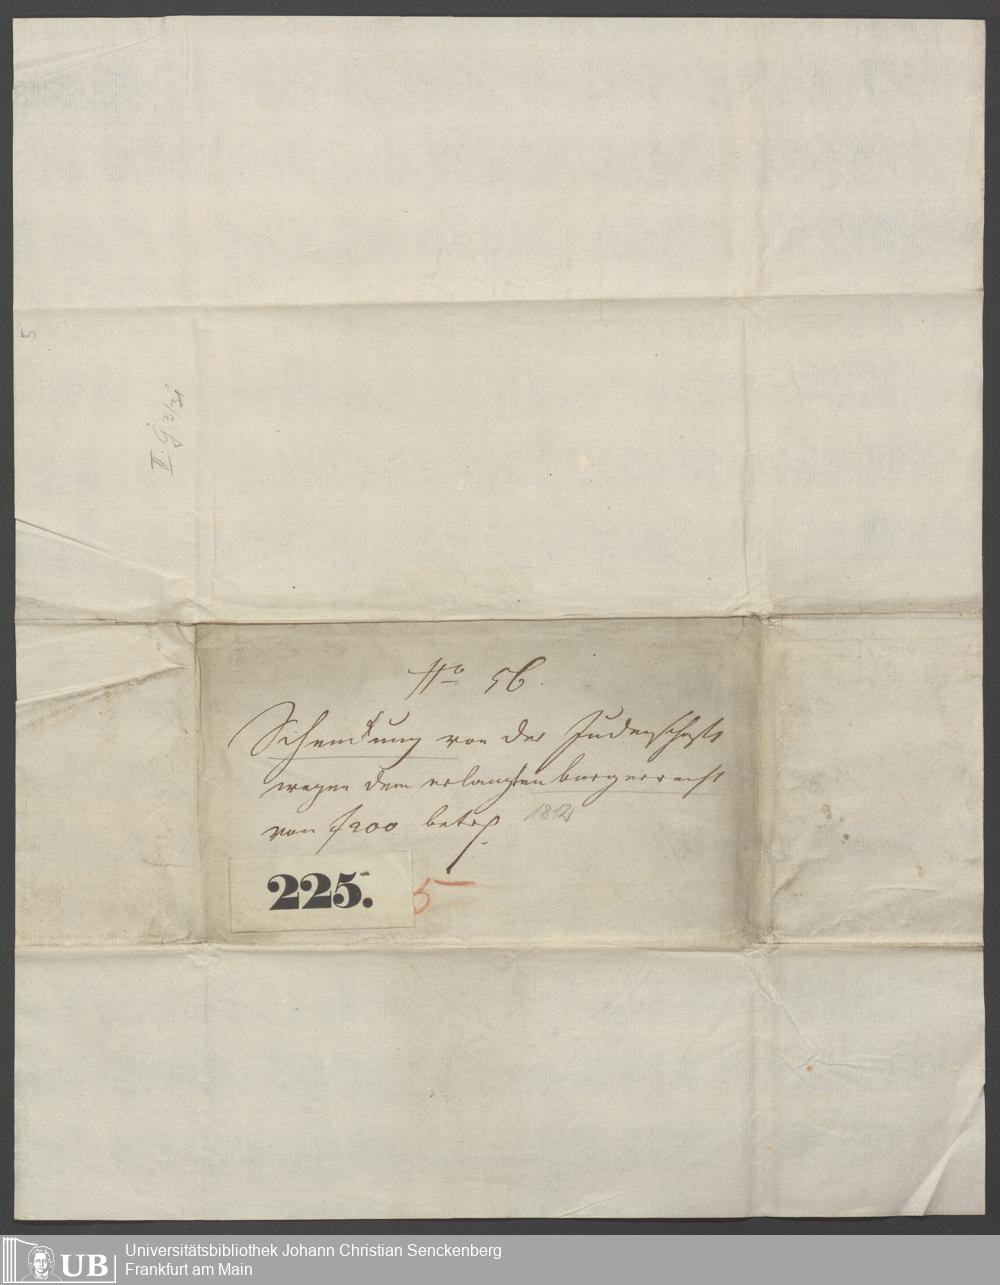 5
II. G 3/31
No 56.
Schenkung von der Judenschaft
wegen dem erlangten burgerrecht
von f 200 betr.
1812
225.
5
Universitätsbibliothek Johann Christian Senckenberg
UB
Frankfurt am Main